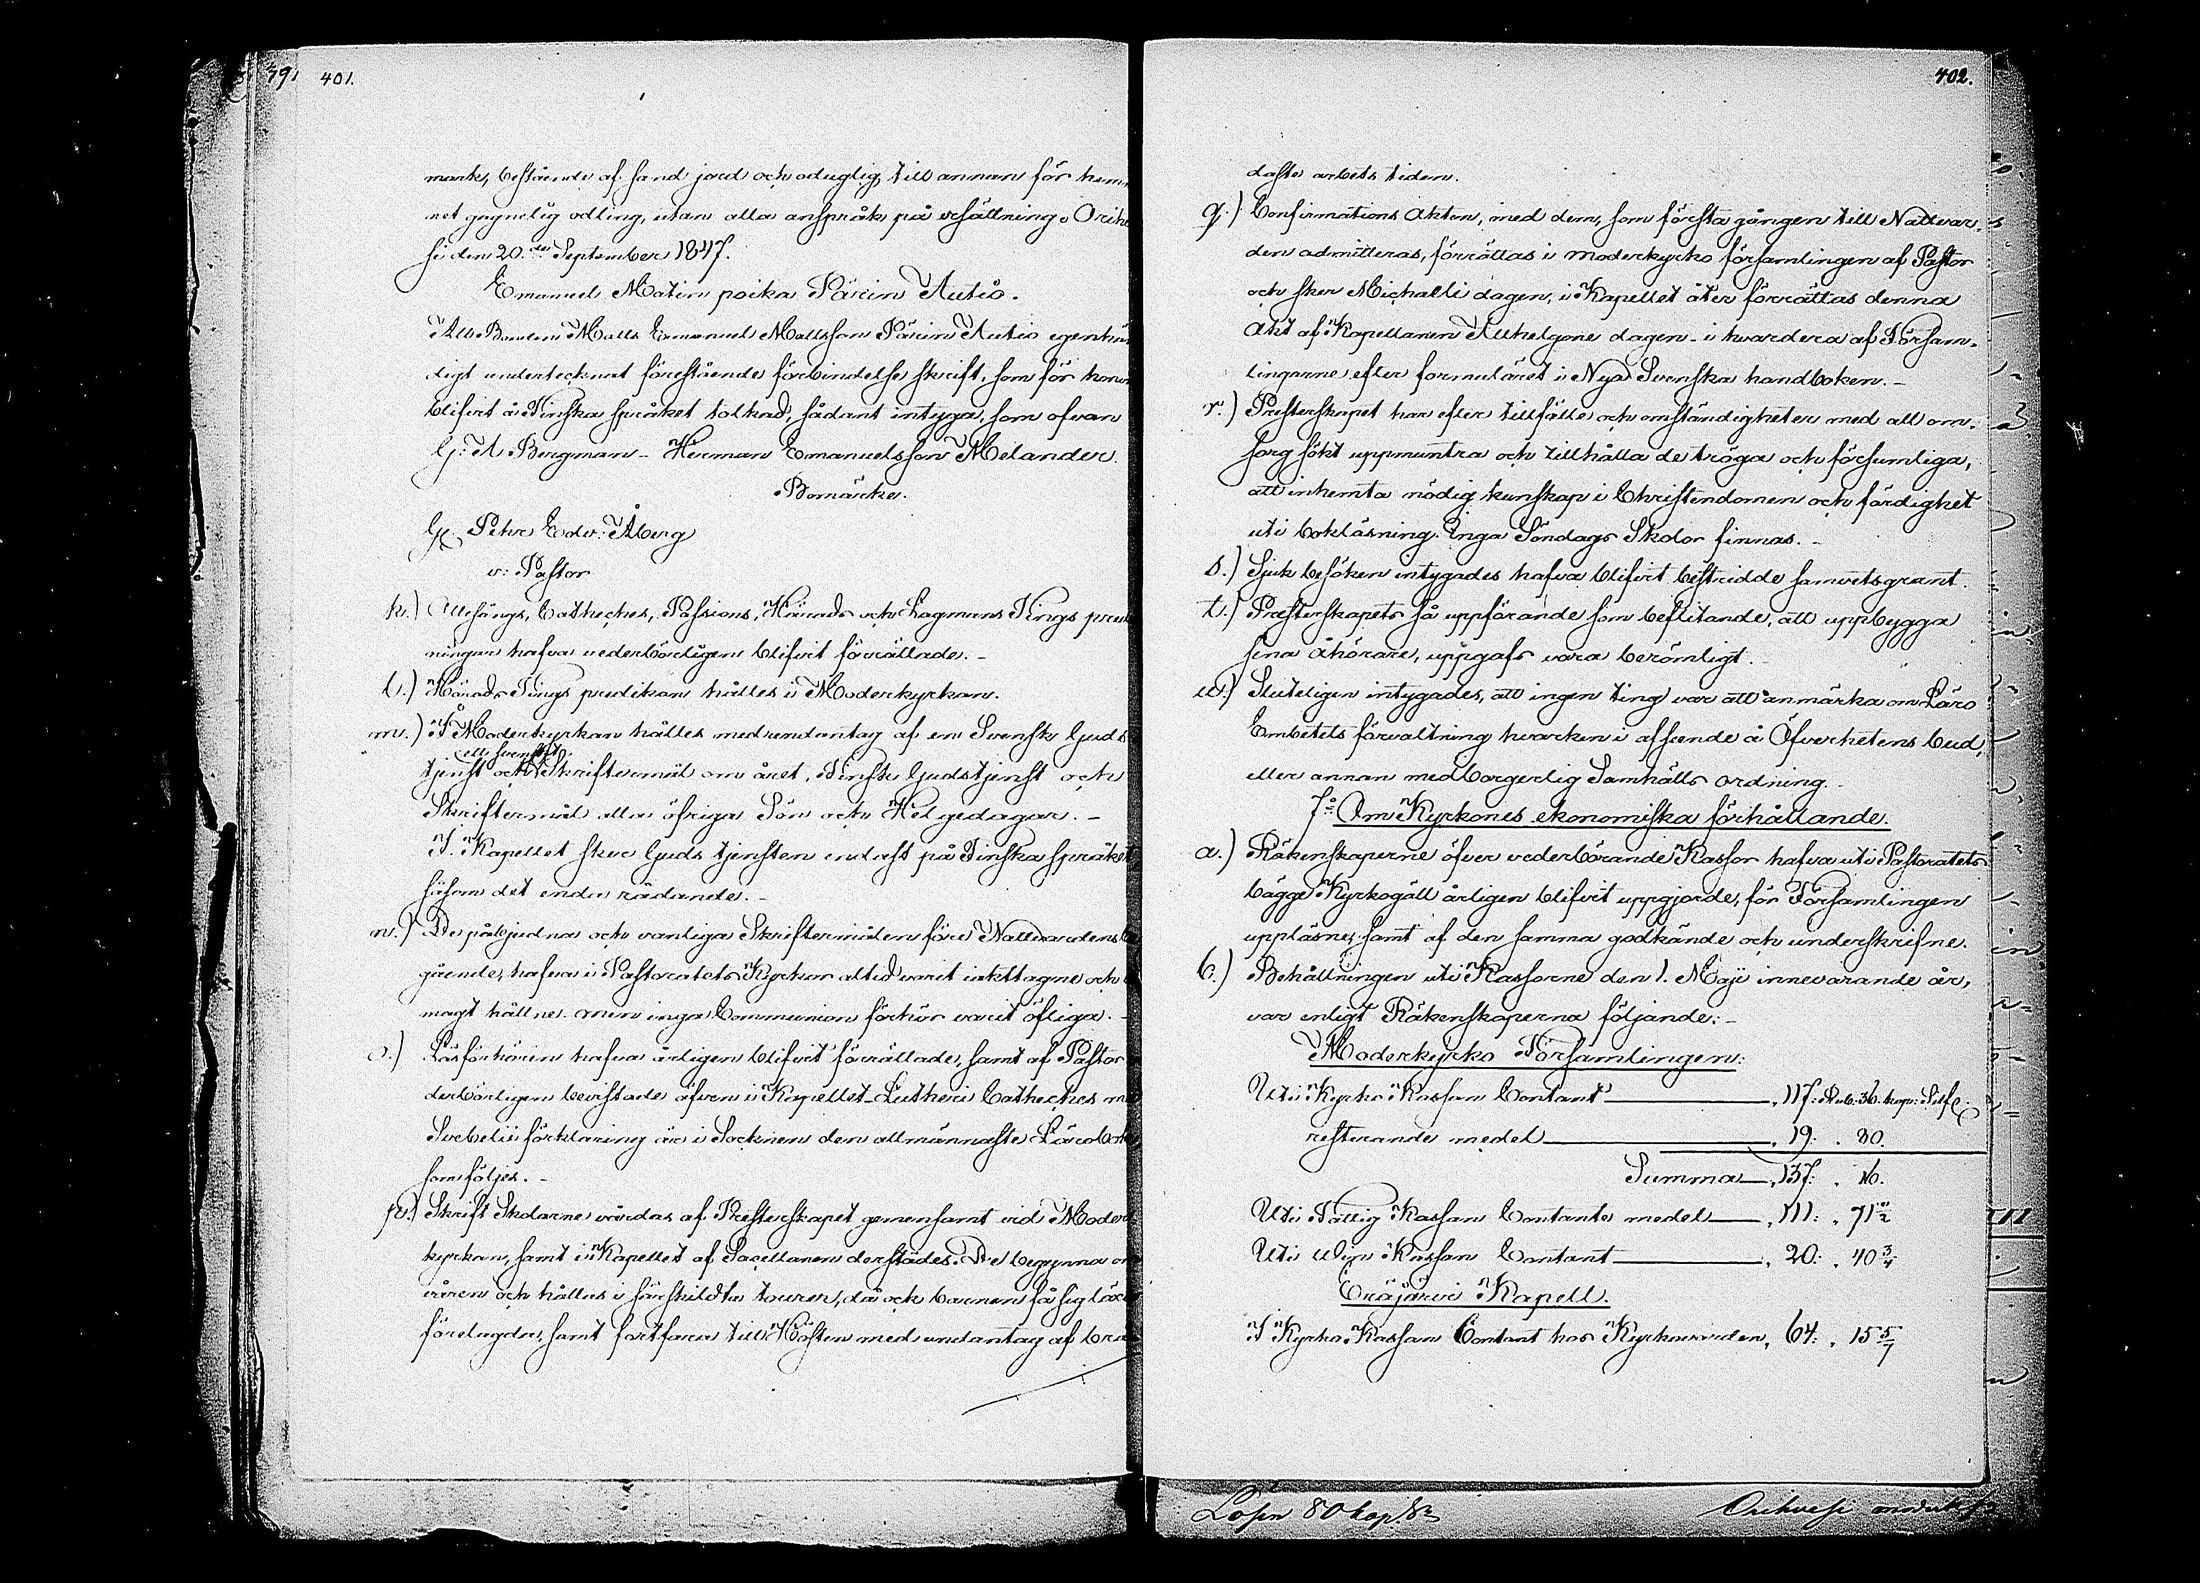 391
401.
mark, bestående af sand jord och oduglig, till annan för hem
net gagnelig odling, utan alla anspråk på ersättning. Orihe
si den 20.de September 1847.
Emanuel Matin poika Pärrin Autio.
Att Bonden Matts Emanuel Mattsson Pärrin Autio egenhän
digt undertecknat förestående förbindelse skrift, som för honom
blifvit å Finska språket tolkad, sådant intyga, som ofvan
G: A Bergman – Herman Emanuelsson Melander.
Bomärke.
Petr Edv: Åberg
v: Pastor
k.) Aftonsångs, Catheches, Passions, Härads och Lagmans Tings predik
ningar hafva vederbörligen blifvit förrättade. –
l.) Härads Tings predikan hålles i Moderkyrkan.
m.) I Moderkyrkan hålles med undantag af en Svensk Guds
ett svenskt
tjenst och Skriftermål om året, Finsk Gudstjenst och
Skriftermål alla öfriga Sön och Helgedagar. –
I Kapellet sker Guds tjensten endast på Finska språket
såsom det enda rådande. –
n.) De påbjudna och vanliga Skriftermålen före Nattvardens be
gående, hafva i Pastoratets Kyrkor altid varit iakttagne och
magt hållne. men inga Communion förhör varit öfliga. –
o.) Läsförhören hafva årligen blifvit förrättade, samt af Pastor
derbörligen bevistade äfven i Kapellet. Lutheri Catheches m
Svebelii förklaring är i Socknen den allmännaste Lärobok
som följes. –
p.) Skrift Skolarne vårdas af Presterskapet gemensamt vid Moder
kyrkan, samt i Kapellet af Sacellanen derstädes. De begynna om
våren och hållas i särskildta tourer, då ock barnen få sig läxor
förelagda, samt fortfara till Hösten med undantag af brå
402.
daste arbets tiden.
q.) Confirmations Akten, med dem, som första gången till Nattvar-
den admitteras, förrättas i moderkyrko församlingen af Pastor
och sker Michaeli dagen, i Kapellet åter förrättas denna
Akt af Kapellanen Allhelgone dagen – i hvardera af Försam-
lingarne efter formuläret i Nya Svenska handboken. –
r.) Presterskapet har efter tillfälle och omständigheter med all om-
sorg sökt uppmuntra och tillhålla de tröga och försumliga,
att inhemta nödig kunskap i Christendomen och färdighet
uti bokläsning. Inga Söndags Skolor finnas. –
s.) Sjuk besöken intygades hafva blifvit bestridde samvetsgrant.
t.) Presterskapets så uppförande som beflitande, att uppbygga
sina Åhörare, uppgafs vara berömligt.
u.) Sluteligen intygades, att ingen ting var att anmärka om Läro
Embetets förvaltning hvarken i afseende å Öfverhetens bud,
eller annan medborgerlig Samhälls ordning.
7:o Om Kyrkones ekonomiska förhållande.
a.) Räkenskaperne öfver vederbörande Kassor hafva uti Pastoratets
bägge Kyrkogäll årligen blifvit uppgjorde, för Församlingen
uppläsne, samt af den samma godkände och underskrifne.
b.) Behållningen uti Kassorne den 1. Maji innevarande år,
var enligt Räkenskaperna följande: –
Moderkyrko Församlingen:
Uti Kyrko Kassan Contant — 117: Rub: 36. kop: Silfr
resterande medel — 19: . 80.
Summa — 137: . 16.
Uti Fattig Kassan Contanta medel — 111: . 71 1/2
Uti Win Kassan Contant — 20: . 40 3/4
Eräjärvi Kapell.
I Kyrko Kassan Contant hos Kyrkovärden, 64: . 15 5/7
Lösen 80 kop. Sr